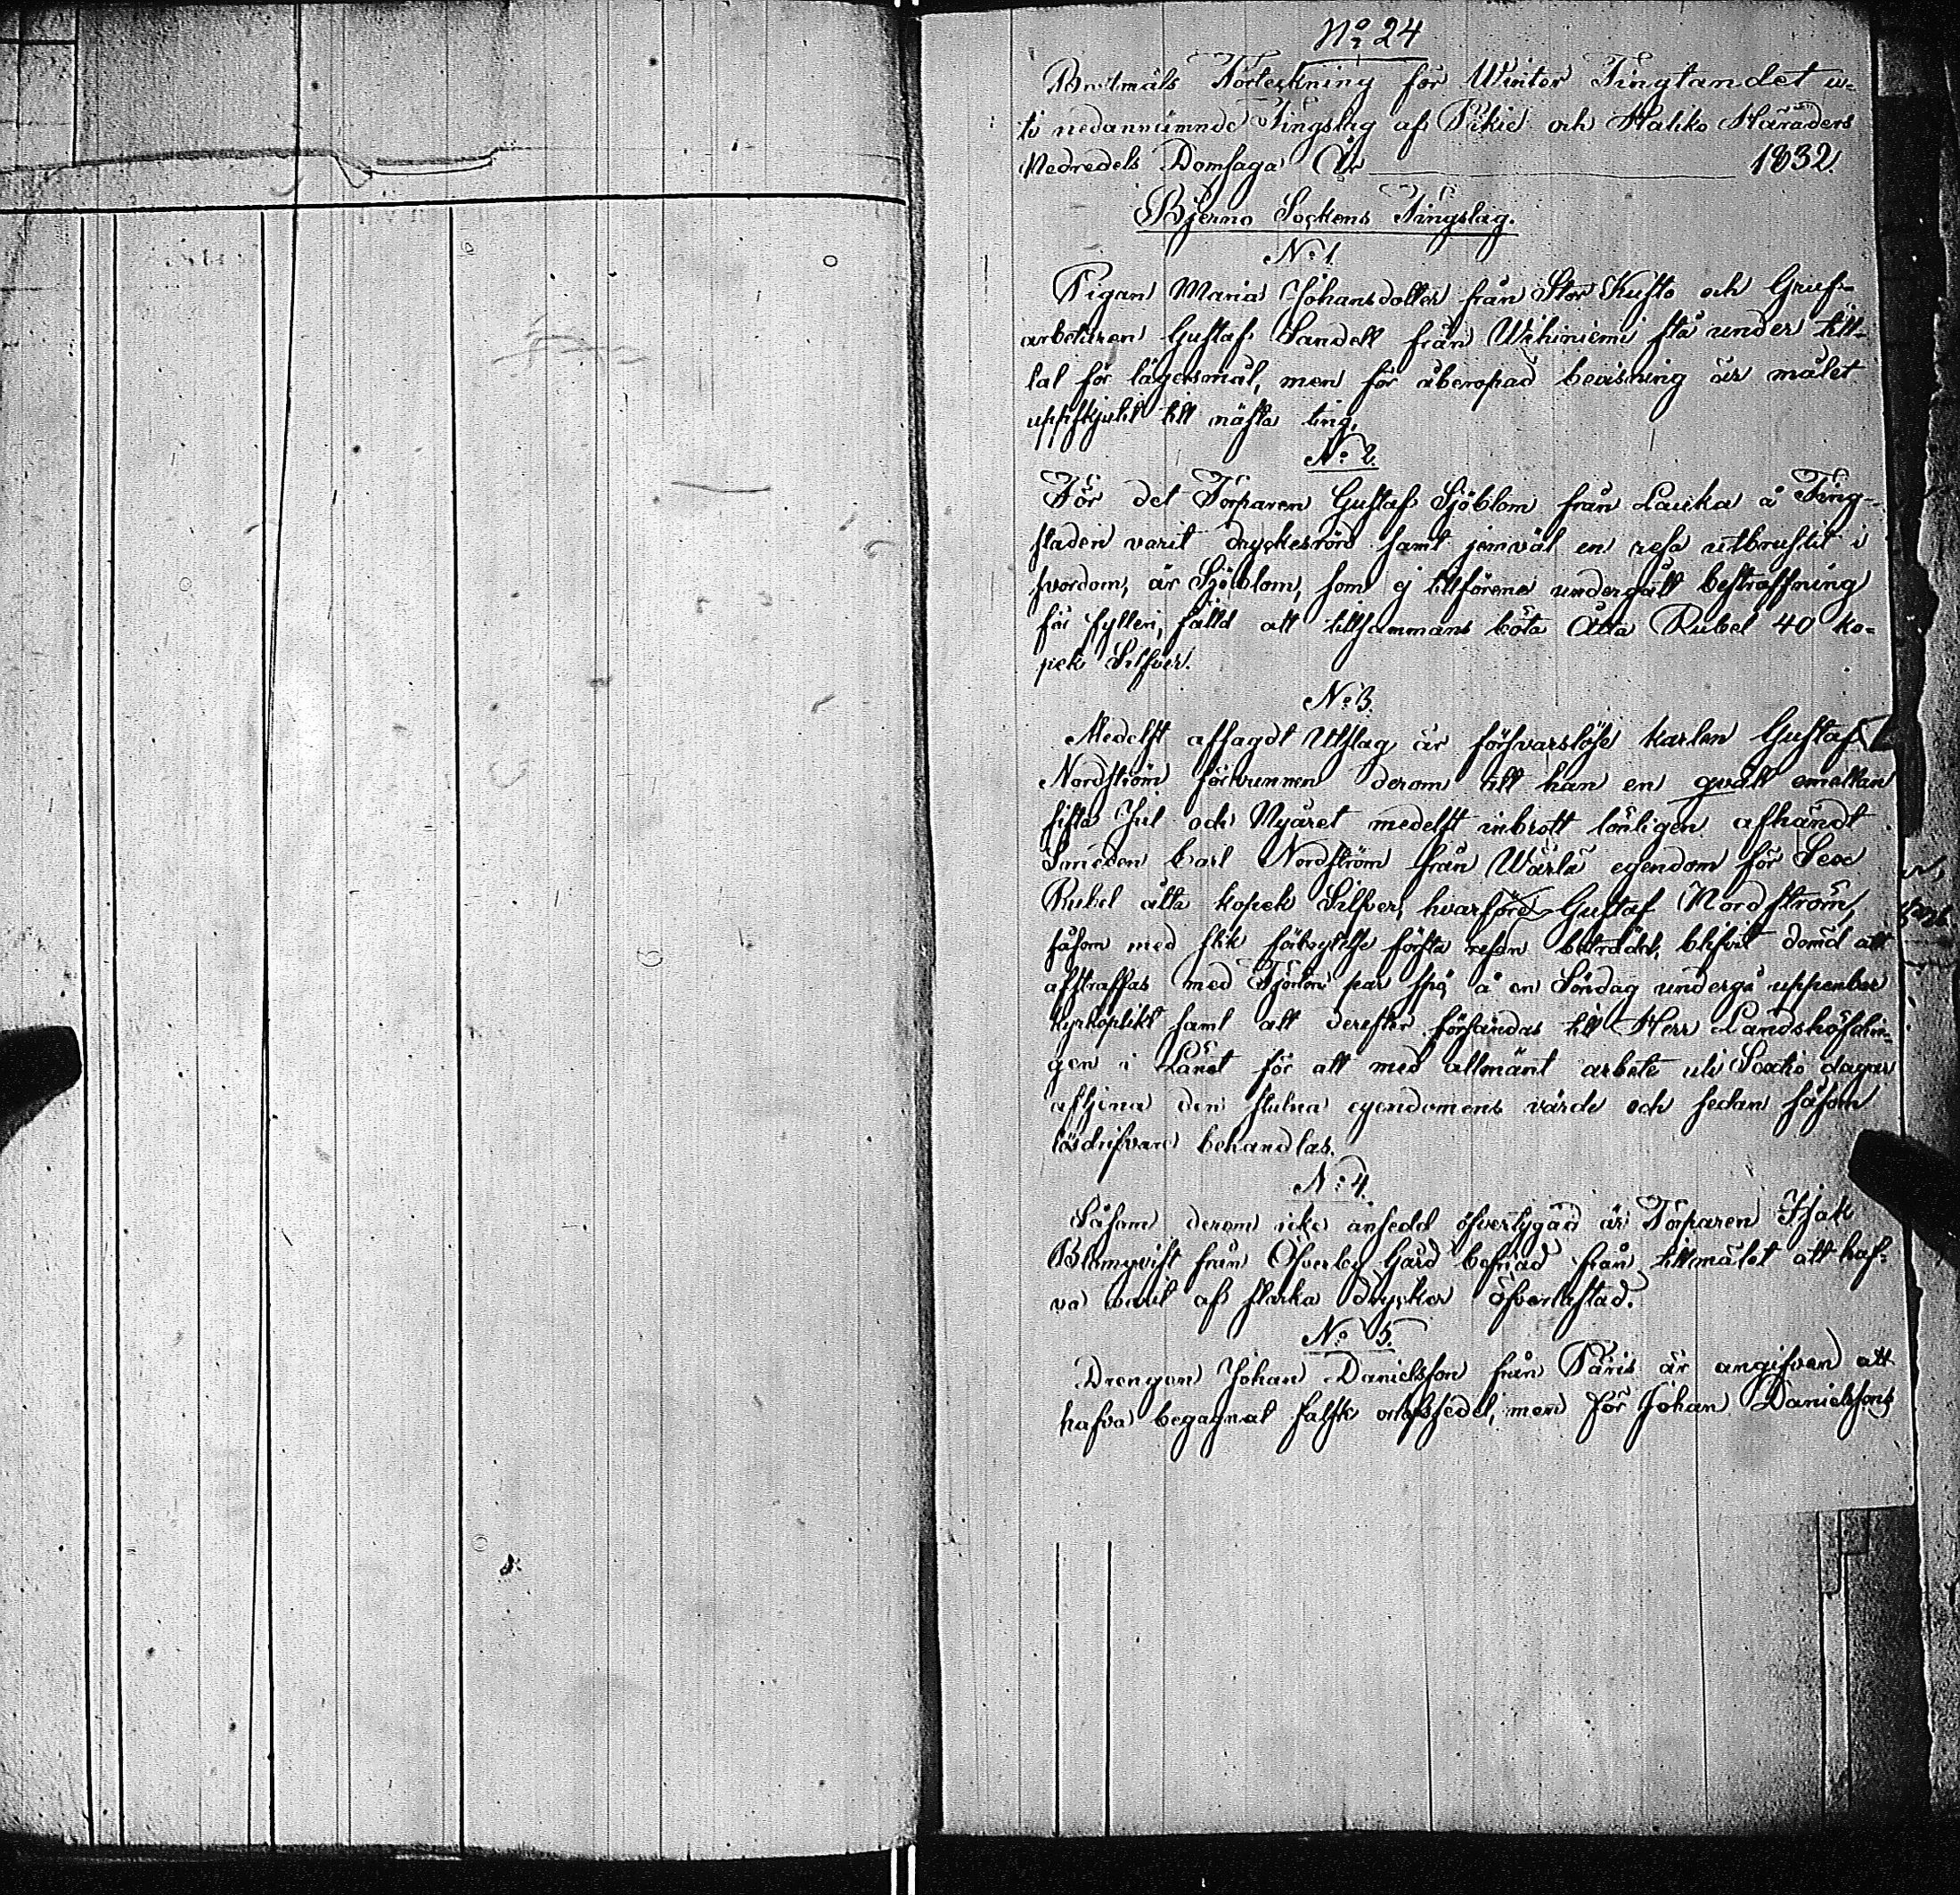 No 24
Brottmåls Förteckning för Winter Tingtandet u-
ti nedannämnde Tingslag af Pikie och Haliko Häraders
Nedredels Domsaga År 1832.
Bjerno Sockens Tingslag.
No 1.
Pigan Maria Johansdotter från Stor Kusto och Gruf-
arbetaren Gustaf Sandell från Wihiniemi stå under till-
tal för lägersmål, men för åberopad bevisning är målet
uppskjutit till nästa ting.
No 2.
För det Torparen Gustaf Sjöblom från Lauka å Ting-
staden varit dryckesrörd samt jemväl en resa utbrustit i
svordom, är Sjöblom, som ej tillförene undergått bestraffning
för fylleri, fälld att tillsammans böta Åtta Rubel 40 ko-
pek Silfver.
No 3.
Medelst afsagdt Utslag är försvarslöse karlen Gustaf
Nordström förvunnen derom att han en qväll emellan
sista Jul och Nyåret medelst inbrott lönligen afhändt
Smeden Carl Nordström från Wärlä egendom för Sex
Rubel åtta kopek Silfver, hvarföre Gustaf Nordström,
såsom med slik förbrytelse första resan beträdd, blifvit dömd att
afstraffas med Fjorton par spö, å en Söndag undergå uppenbar
kyrkoplikt samt att derefter försändas till Herr Landshöfdin-
gen i Länet för att med allmänt arbete uti Sextio dagar
aftjena den stulna egendomens värde och sedan såsom
lösdrifvare behandlas.
No 4.
Såsom derom icke ansedd öfvertygad är Torparen Isak
Blomqvist från Öfverby Gård befriad från tillmälet att haf-
va varit af starka drycker öfverlastad.
No 5.
Drengen Johan Danielsson från Päris är angifven att
hafva begagnat falsk orlofssedel, men för Johan Danielssons